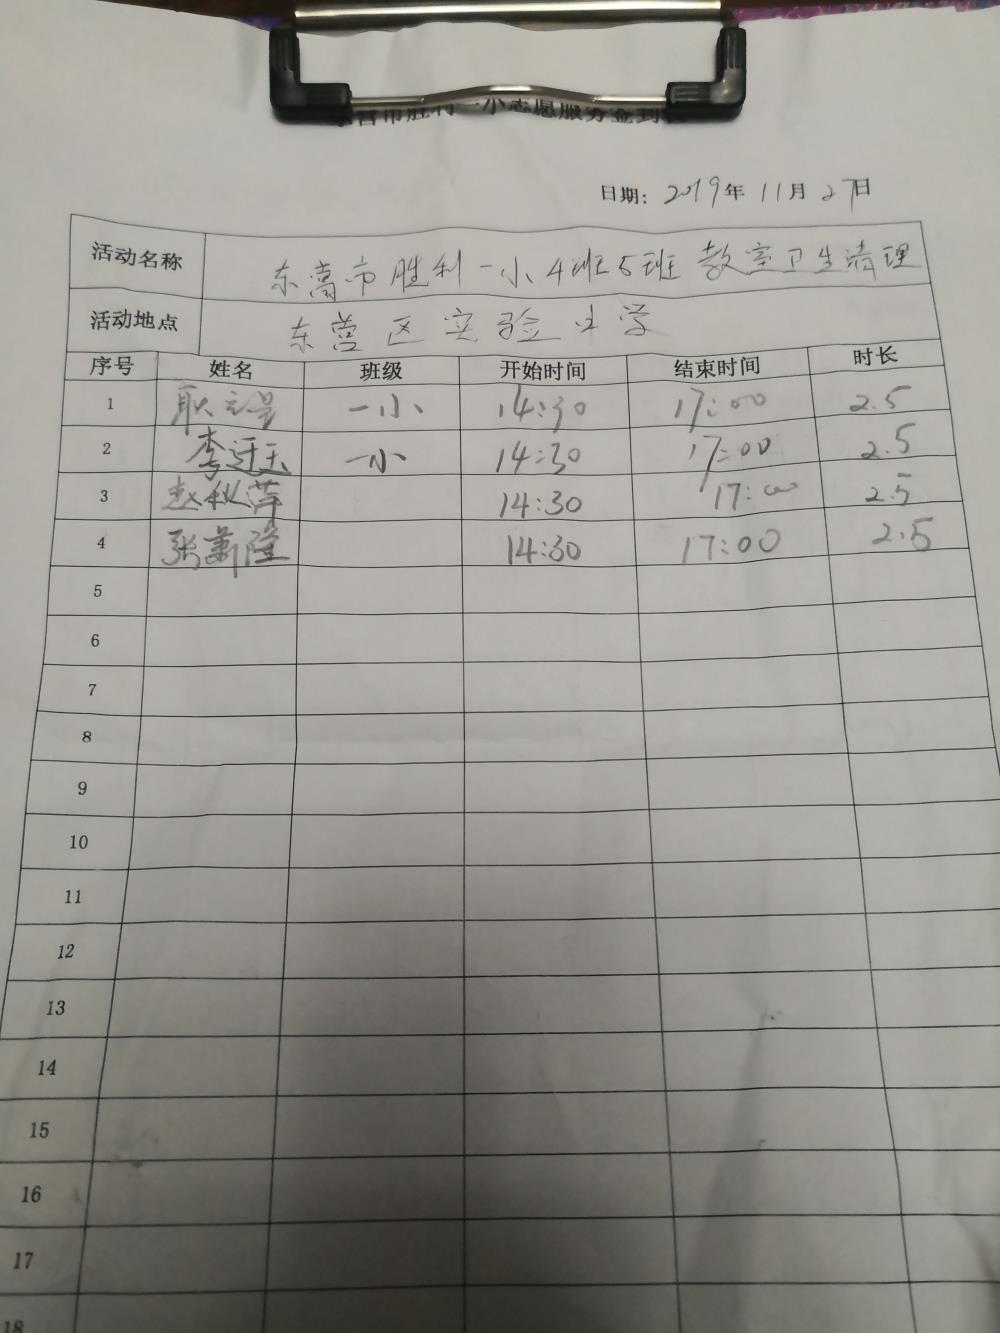 东营市胜利一小志愿服务签到表
日期: 2019年11月27日
活动名称 东营市胜利一小4班5班教室卫生清理
活动地点 东营区实验中学
序号 姓名 班级 开始时间 结束时间 时长
1 一小 14:30 17:00 2.5
2 李迁玉 一小 14:30 17:00 2.5
3 赵秋萍 14:30 17:00 2.5
4 张萧隆 14:30 17:00 2.5
5
6
7
8
9
10
11
12
13
14
15
16
17
18